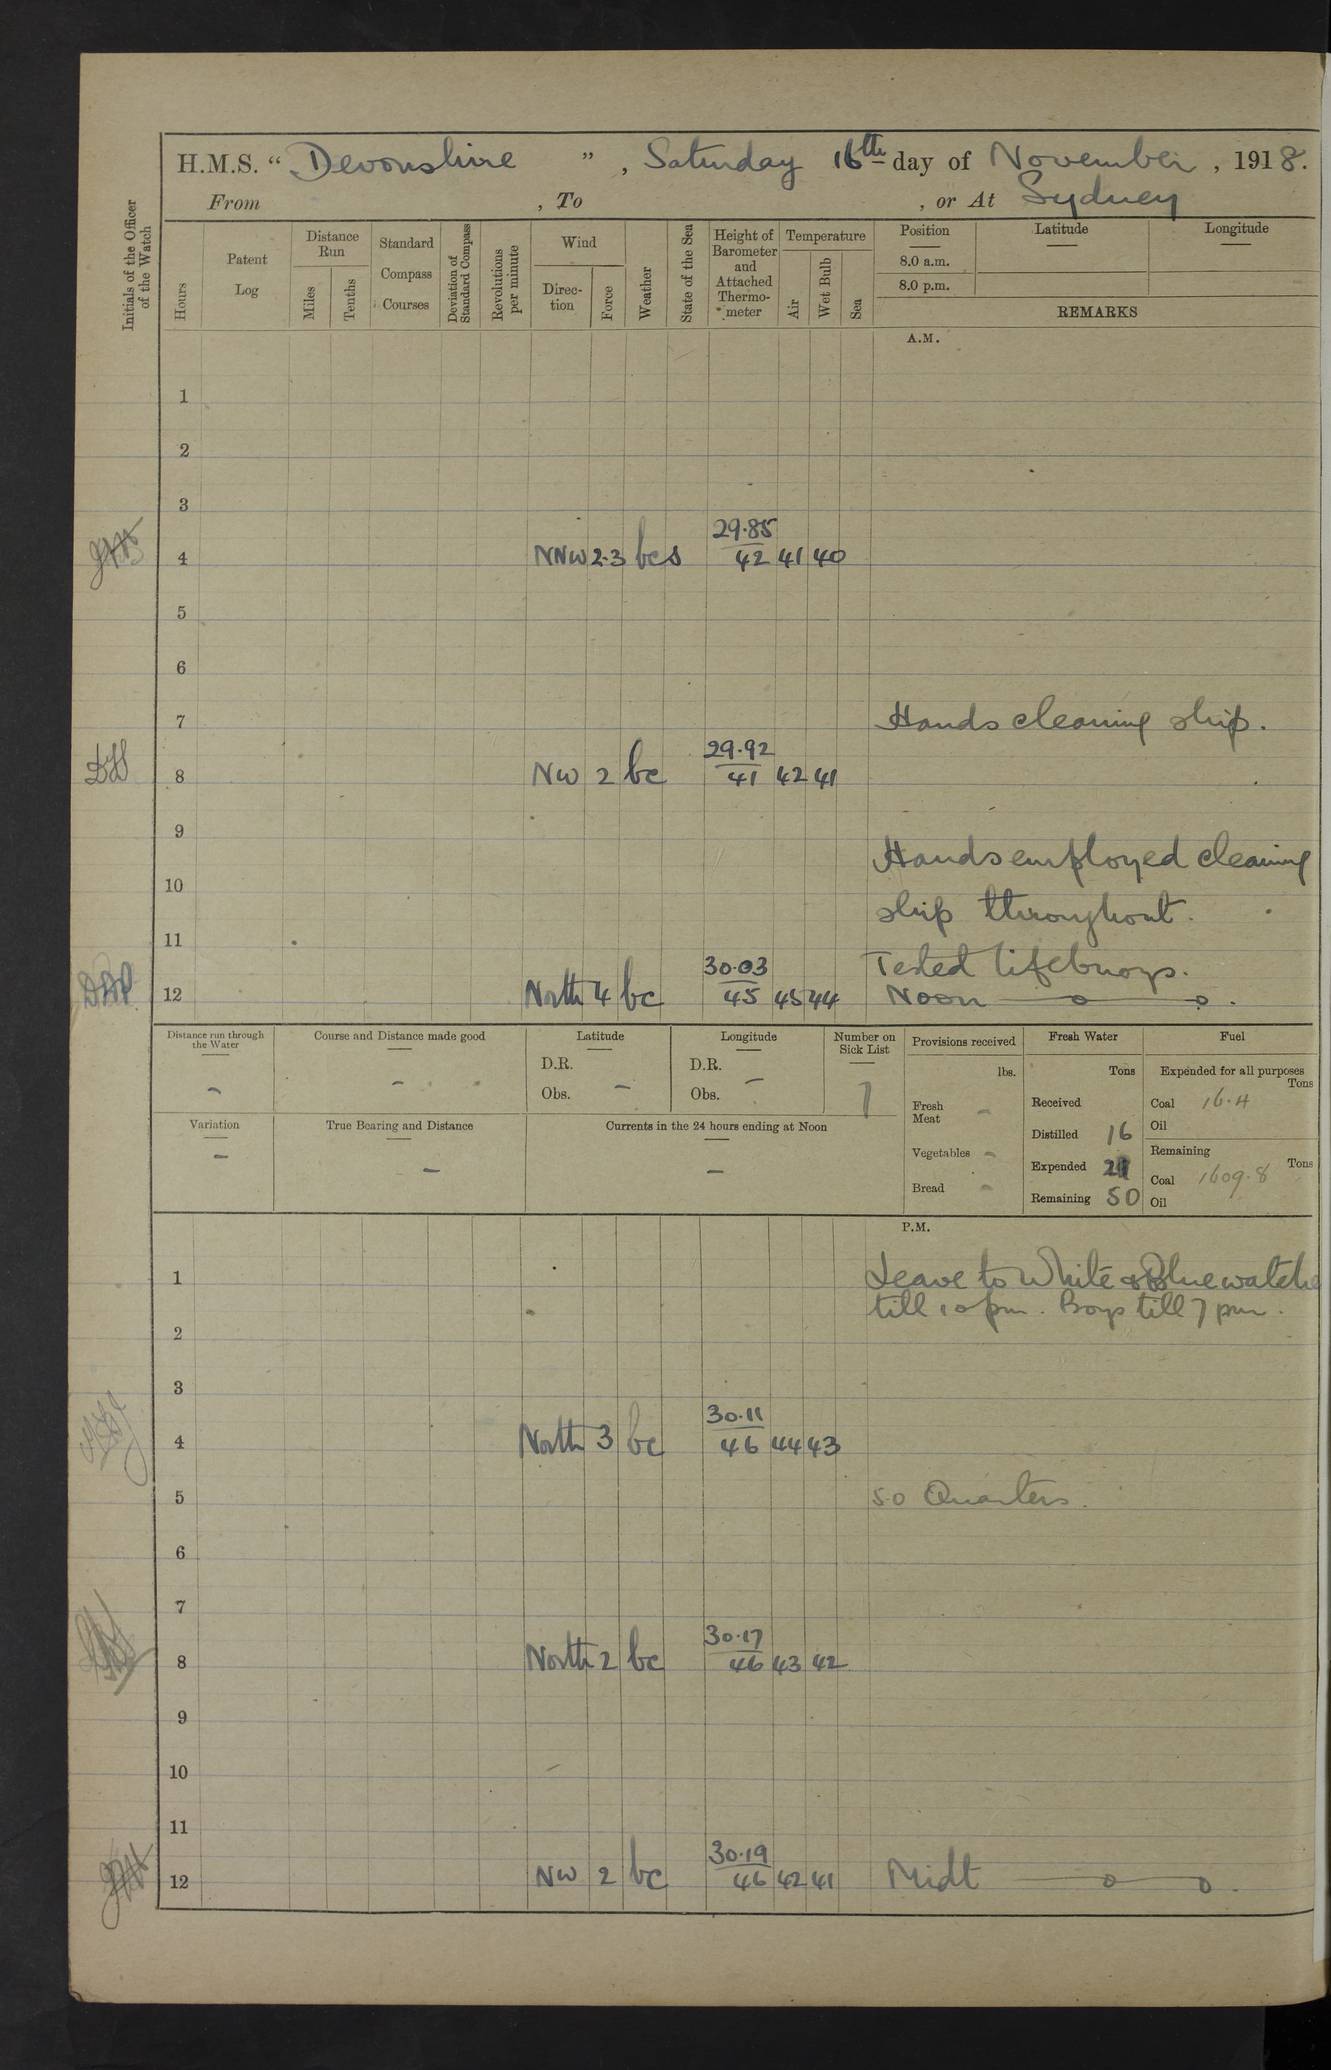 H.M.S. “ Devonshire ” , Saturday 16th day of November , 1918.
From , To , or At Sydney
Initials of the Officer of the Watch
Hours
Patent Log
Distance Run
Miles
Tenths
Standard Compass Courses
Deviation of Standard Compass
Revolutions per minute
Wind
Direc-tion
Force
Weather
State of the Sea
Height of Barometer and Attached Thermo-meter
Temperature
Air
Wet Bulb
Sea
Position
8.0 a.m.
8.0 p.m.
Latitude
Longitude
REMARKS
A.M.
1
2
3
29.85
4 NNW 2.3 bcs 42 41 40
5
6
7 Hands cleaning ship.
29.92
8 NW 2 bc 41 42 41
9
Hands employed cleaning
10
ship throughout.
11
30.03 Tested lifebuoys.
12 North 4 bc 45 45 44 Noon
Distance run through the Water
-
Course and Distance made good
-
Latitude
D.R.
Obs. -
Longitude
D.R.
Obs. -
Number on Sick List
7
Variation
-
True Bearing and Distance
-
Currents in the 24 hours ending at Noon
-
Provisions received
lbs.
Fresh Meat -
Vegetables -
Bread -
Fresh Water
Tons
Received
Distilled 16
Expended
Remaining 50
Fuel
Expended for all purposes
Tons
Coal 16.4
Oil
Remaining
Tons
Coal 1609.8
Oil
P.M.
1 Leave to White & Blue watche
till 10 pm. Boys till 7 pm.
2
3
30.11
4 North 3 bc 46 44 43
5 5.0 Quarters.
6
7
30.17
8 North 2 bc 46 43 42
9
10
11
30.19
12 NW 2 bc 46 42 41 Midt